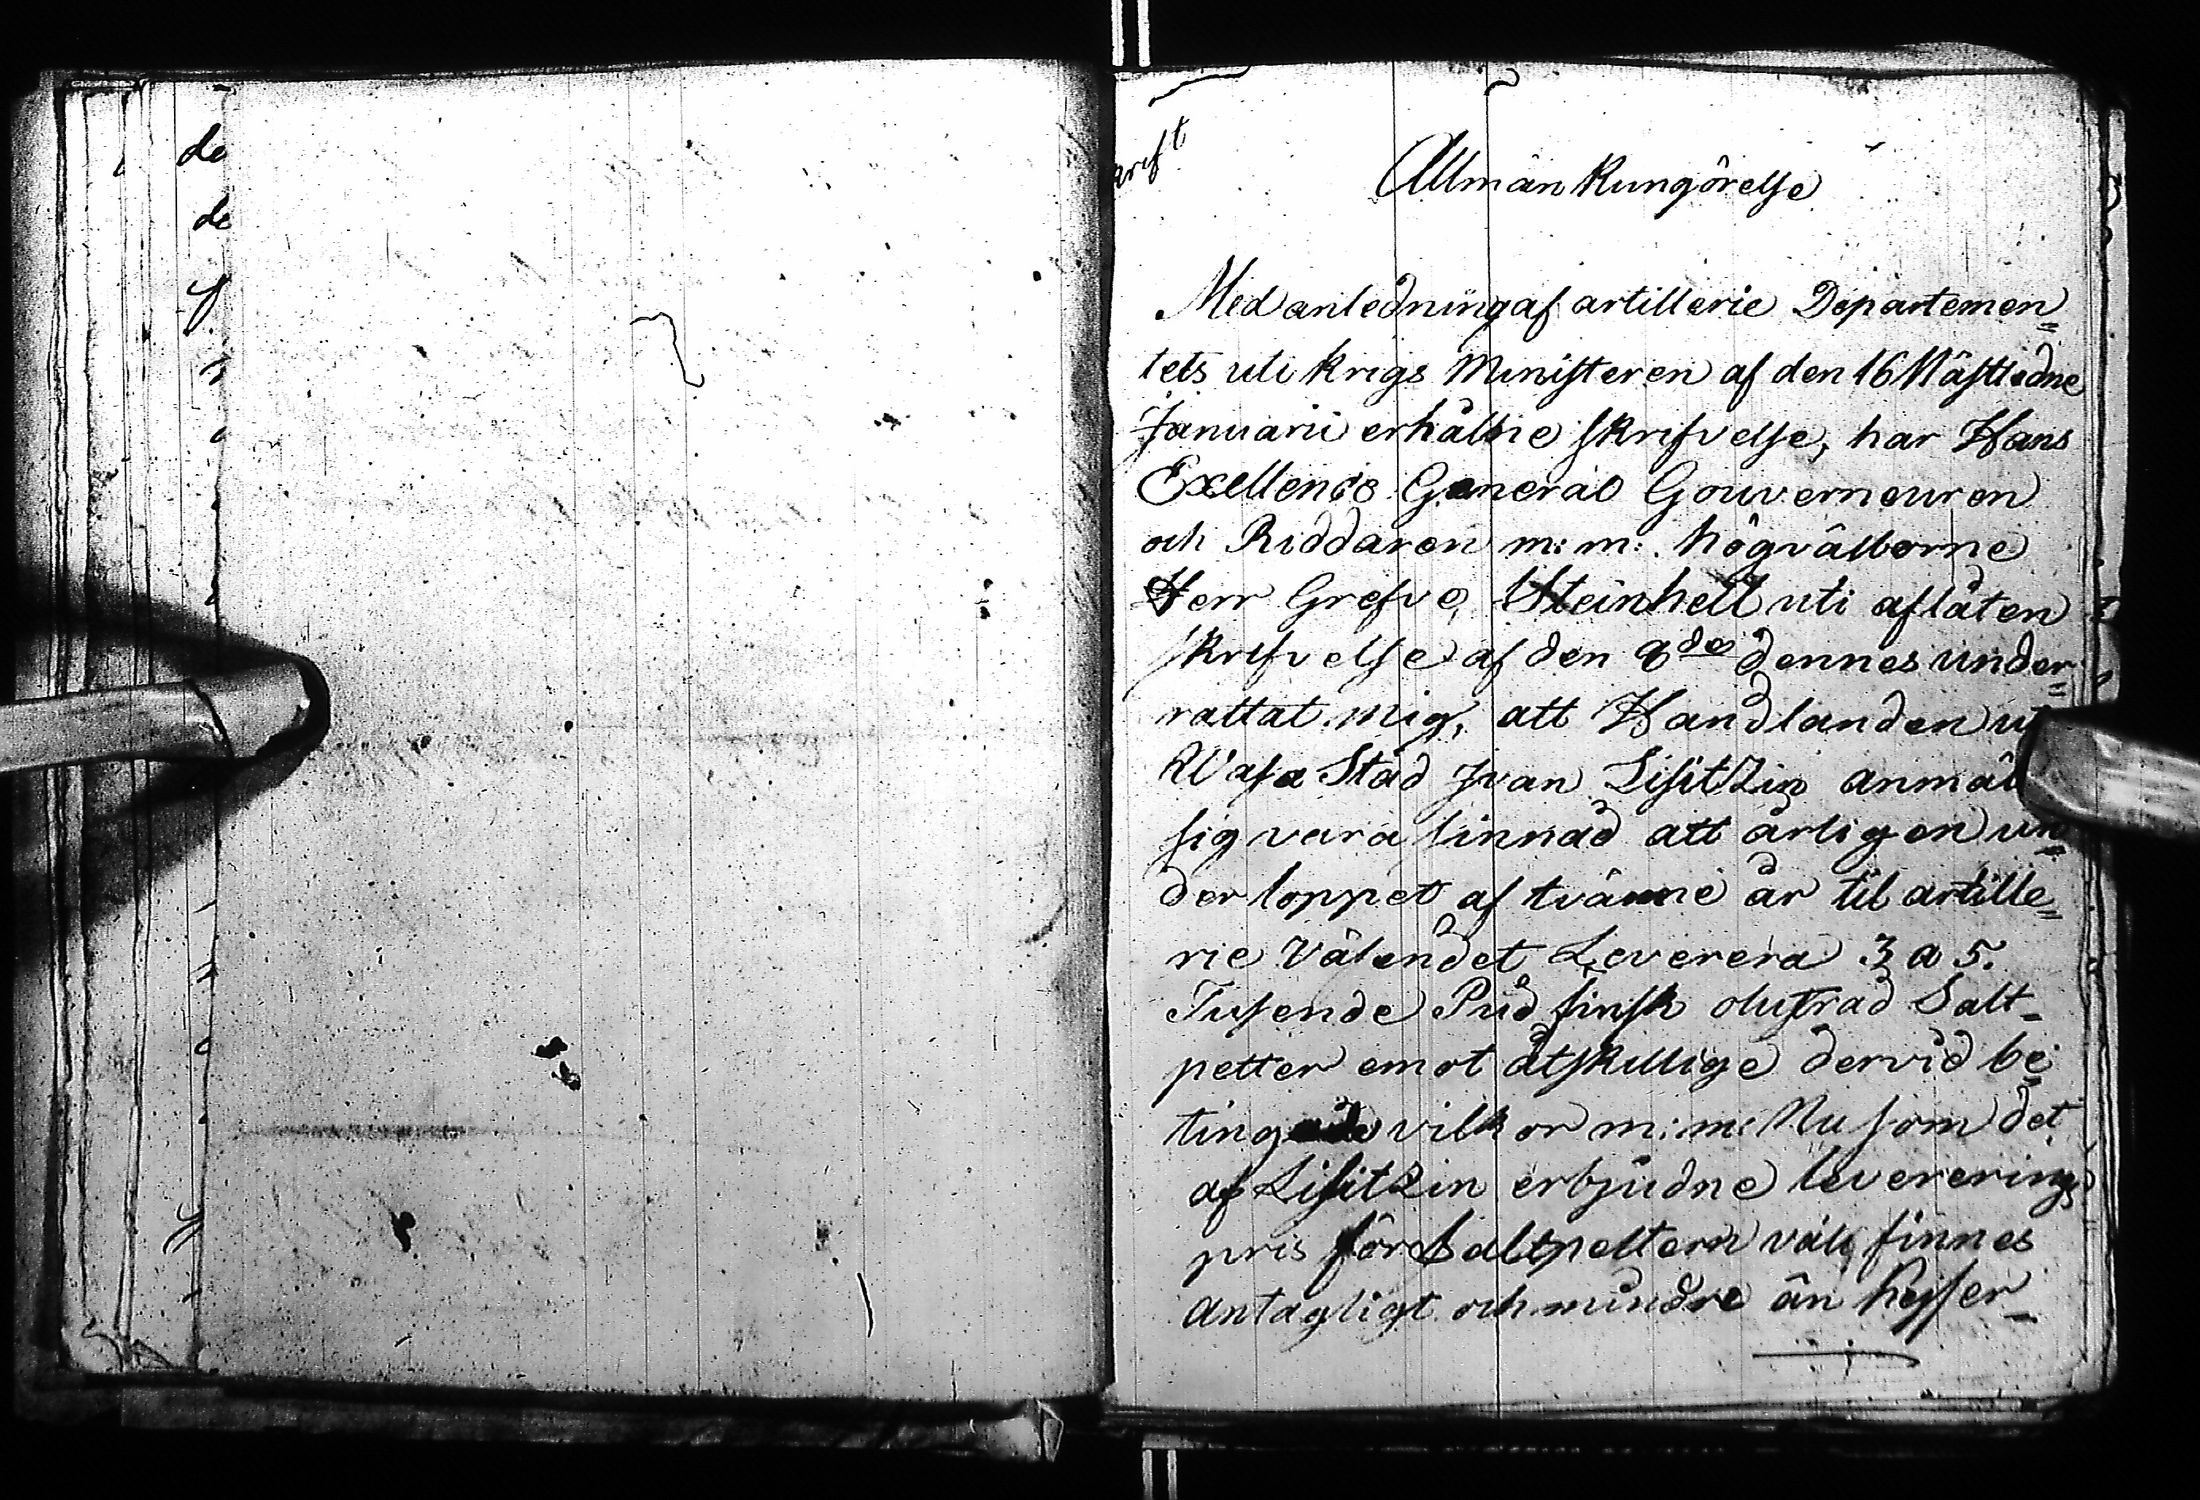 de
de
krift
Allmän Kungörelse
Med anledning af artillerie Departemen=
tets uti krigs Ministeren af den 16 Nästledne
Januarii erhåldne skrifvelse, har Hans
Exellence General Gouverneuren
och Riddaren m: m: högvälborne
Herr Grefve Steinhell uti aflåten
skrifvelse af den 8de dennes under=
rattat mig, att Handlanden ut
Wasa Stad Ivan Lisitzin anmäl
sig vara sinnad att årligen un=
der loppet af tvänne år til artille=
rie väsendet Leverera 3 a 5.
Tusende Pud finsk olutrad Salt-
petter emot åtskillige dervid be
ting vilkor m: m: Nu som det
af Lisitzin erbjudne leverering
pris för Saltpettern väl finnes
antagligt och mindre än